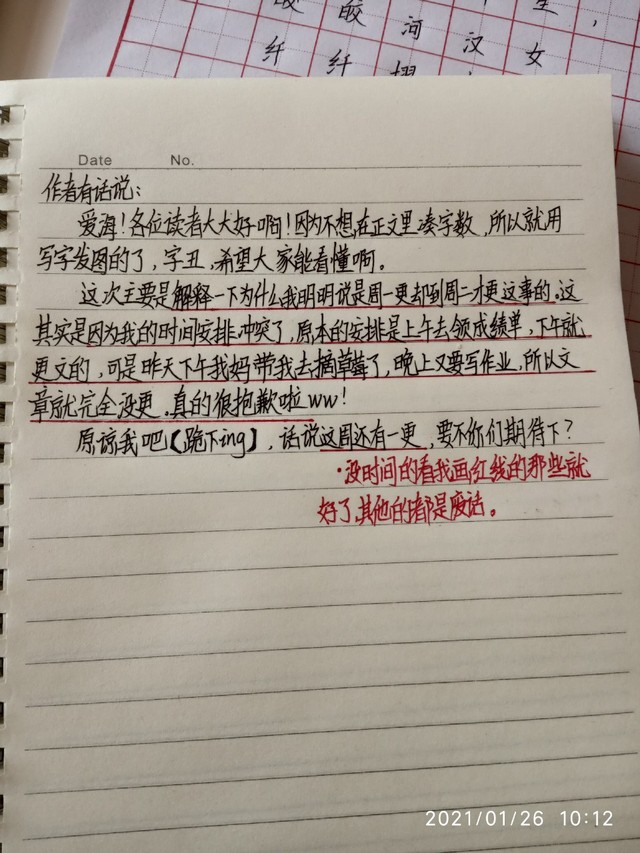 皎 皎 河 汉 女
纤 纤
Date No.
作者有话说：
爱海！各位读者大大好啊！因为不想在正文里凑字数，所以就用
写字发图的了，字丑，希望大家能看懂啊。
这次主要是解释一下为什么我明明说是周一更却到周二才更这事的。这
其实是因为我的时间安排冲突了，原本的安排是上午去领成绩单，下午就
更文的，可是昨天下午我妈带我去摘草莓了，晚上又要写作业，所以文
章就完全没更。真的很抱歉啦ww！
原谅我吧【跪下ing】，话说这周还有一更，要不你们期待下？
·没时间的看我画红线的那些就
好了，其他的都是废话。
2021/01/26 10:12